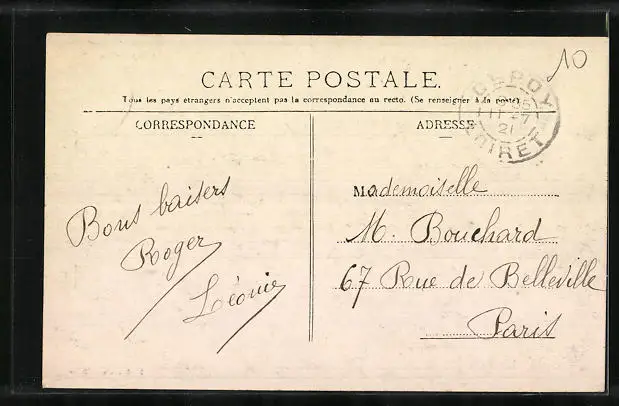 10
CARTE POSTALE.
Tous les pays étrangers n'acceptent pas la correspondance au recto. (Se renseigner à la poste)
CORRESPONDANCE
ADRESSE
CEPOY
21
LOIRET
Bons baisers
Roger
Léonie
Mademoiselle
M. Bouchard
67 Rue de Belleville
Paris